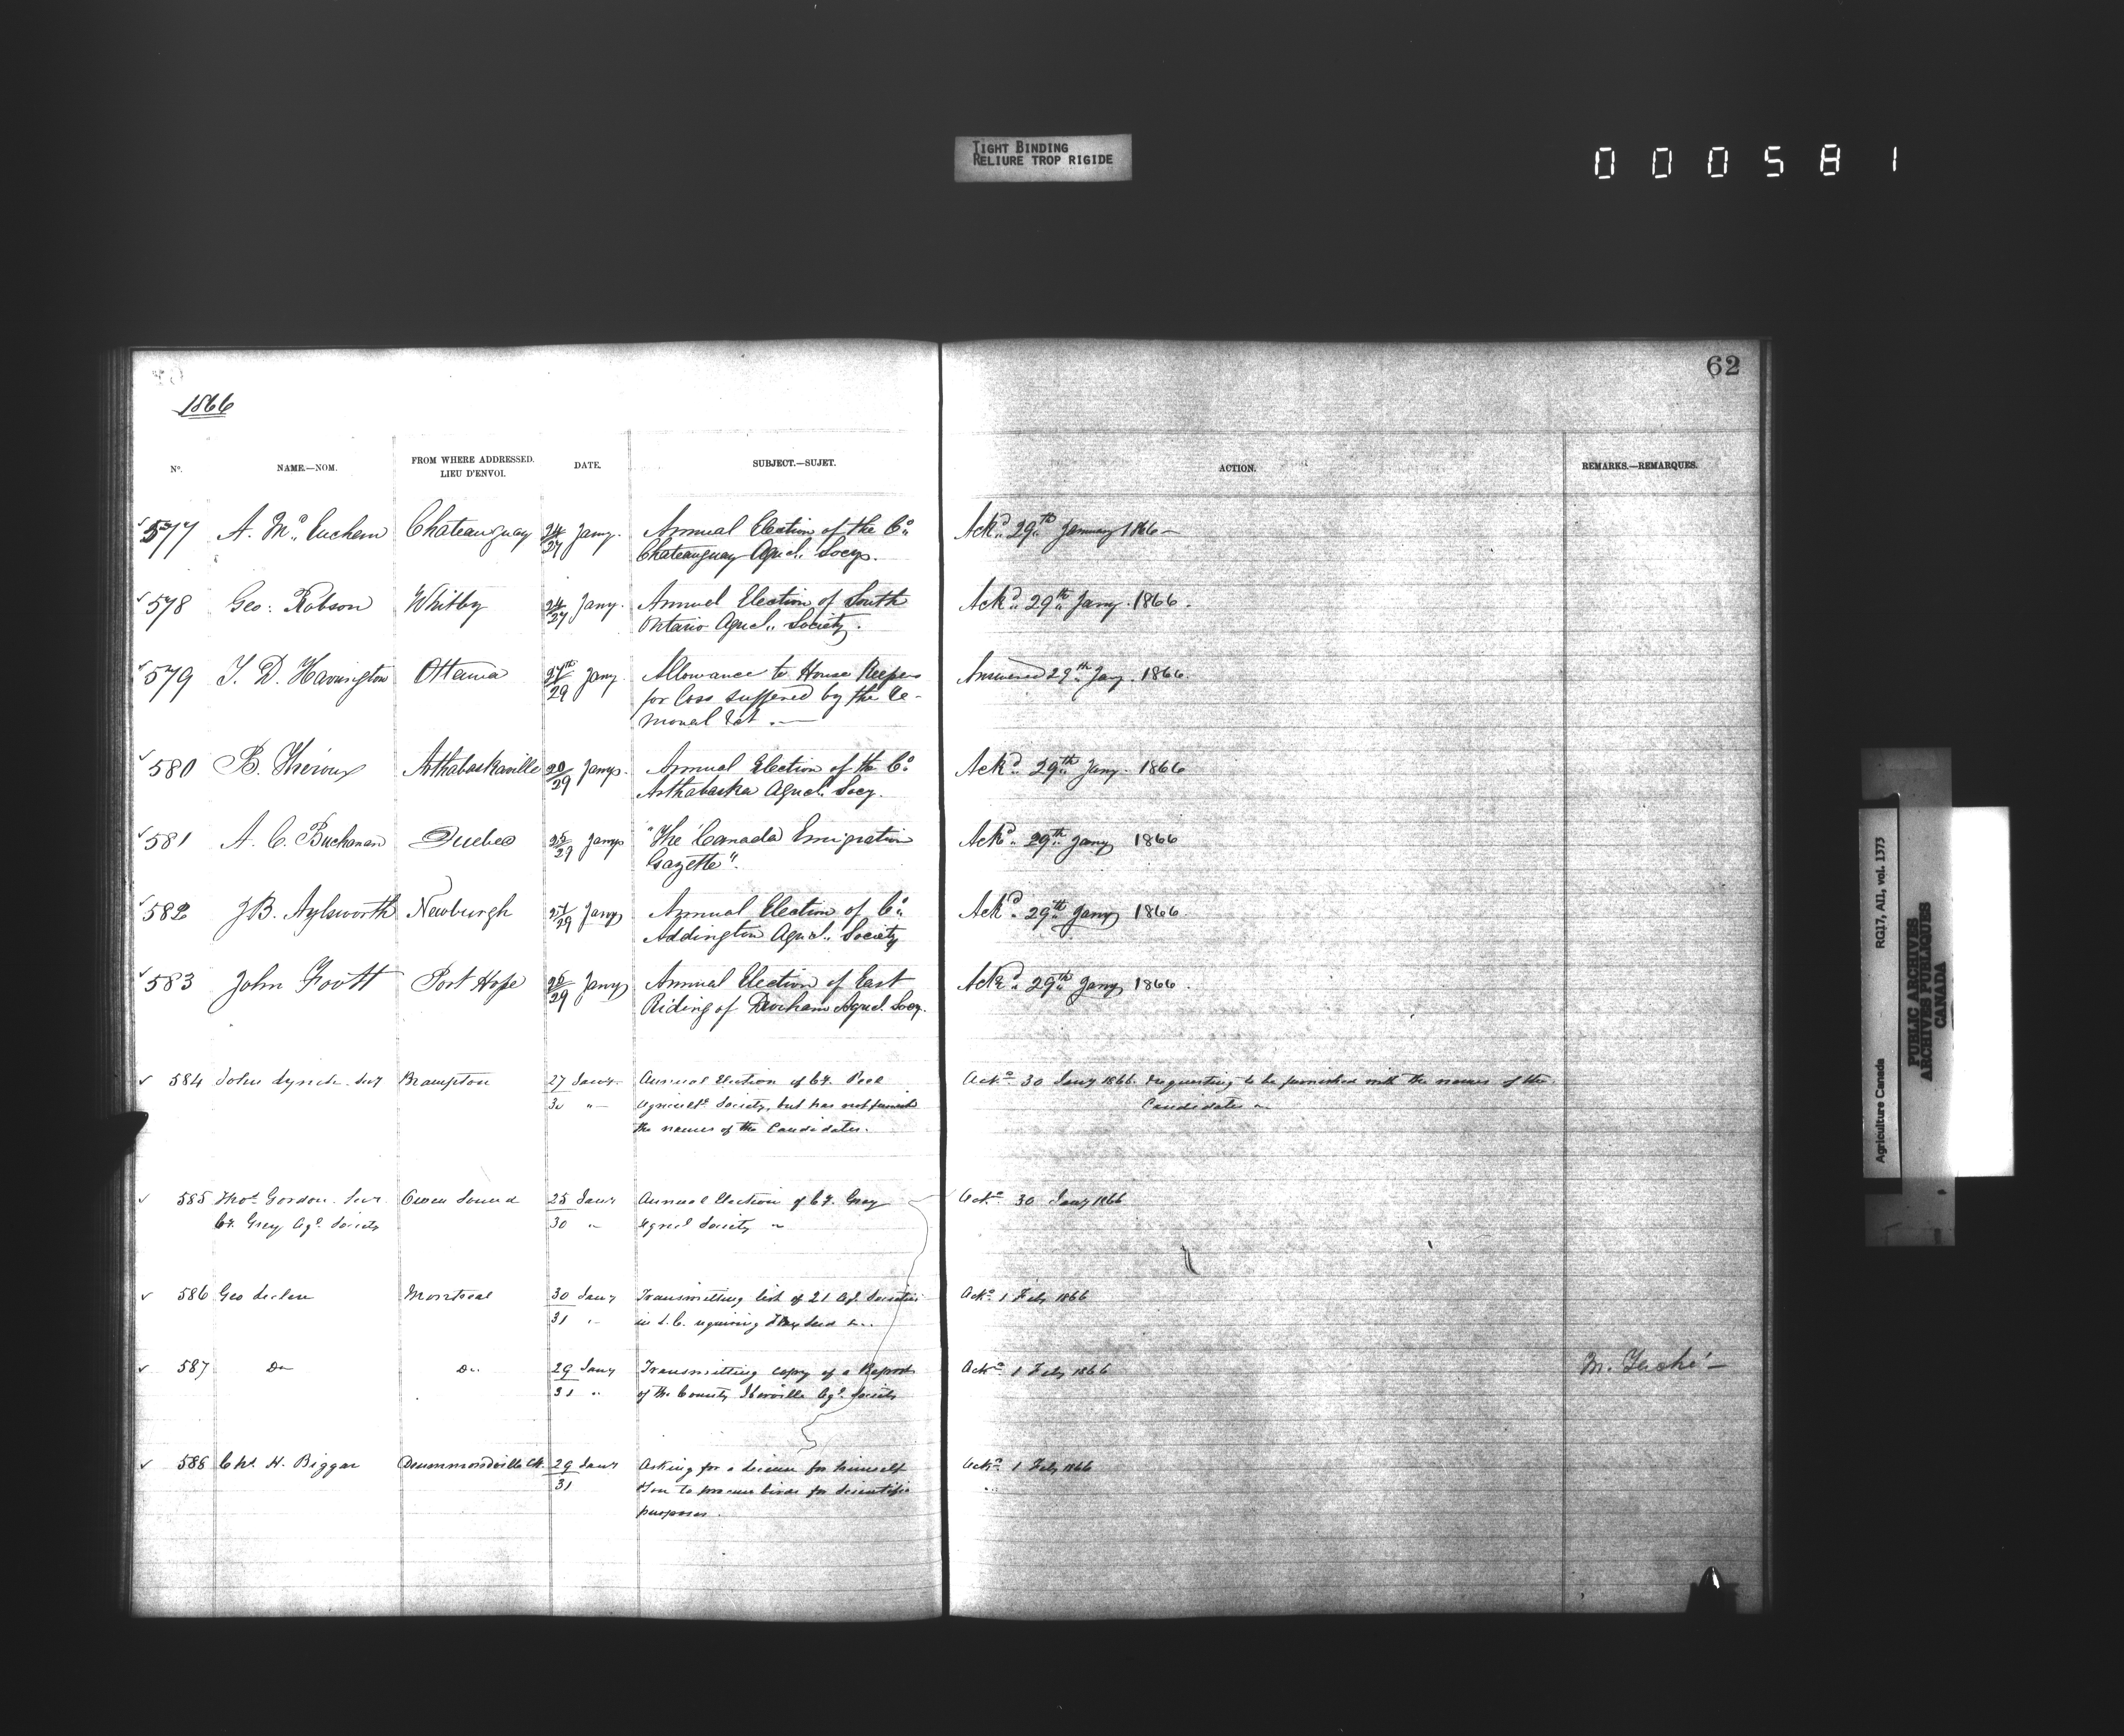 TIGHT BINDING
RELIURE TROP RIGIDE
000581
62
1866
No. NAME.—NOM. FROM WHERE ADDRESSED. LIEU D'ENVOI. DATE. SUBJECT.—SUJET. ACTION. REMARKS.—REMARQUES.
577 A. Mc Euchern Chateauguay 24/27 Jany. Annual Election of the Co. Ackd 29th January 1866 —
Chateauguay Agricl. Socy.
578 Geo: Robson Whitby 24/27 Jany. Annual Election of South Ackd 29th Jany. 1866.
Ontario Agricl. Society.
579 T. D. Harrington Ottawa 27th/29 Jany Allowance to House Keepers Answered 29th Jany. 1866.
for loss suffered by the re-
moval &ct. —
580 B. Théroux Arthabaskaville 20/29 Jany. Annual Election of the Co. Ackd 29th Jany. 1866
Arthabaska Agricl. Socy.
581 A. C. Buchanan Quebec 25/29 Jany "The Canada Emigration Ackd 29th Jany 1866
Gazette".
582 J.B. Aylsworth Newburgh 27/29 Jany Annual Election of Co. Ackd 29th Jany 1866
Addington Agricl. Society
583 John Foott Port Hope 26/29 Jany Annual Election of East Ackd 29th Jany 1866.
Riding of Durham Agricl. Socy.
584 John Lynch. Secy Brampton 27 Jany. Annual Election of Cy. Peel Ackd 30 Jany 1866. requesting to be furnished with the names of the
30 " Agricult. Society, but has not furnish Candidates
the names of the Candidates.
585 Thos. Gordon. Secy. Owen Sound 25 Jany Annual Election of Cy. Grey Ackd 30 Jany 1866
Cy. Grey Agl. Society 30 " Agricl Society
586 Geo Leclere Montreal 30 Jany Transmitting list of 21 Agl. Societies Ackd 1 Feby 1866
31 " in L.C. requiring Flax Seed &..
587 Do Do. 29 Jany Transmitting copy of a Report Ackd 1 Feby 1866 M. Taché —
31 " of the County Iberville Agl. Society
588 Chs. H. Biggar Drummondville 29 Jany Asking for a license for himself Ackd 1 Feby 1866
31 to procure birds for Scientific
purposes.
Agriculture Canada RG17, AII, vol. 1373
PUBLIC ARCHIVES
ARCHIVES PUBLIQUES
CANADA